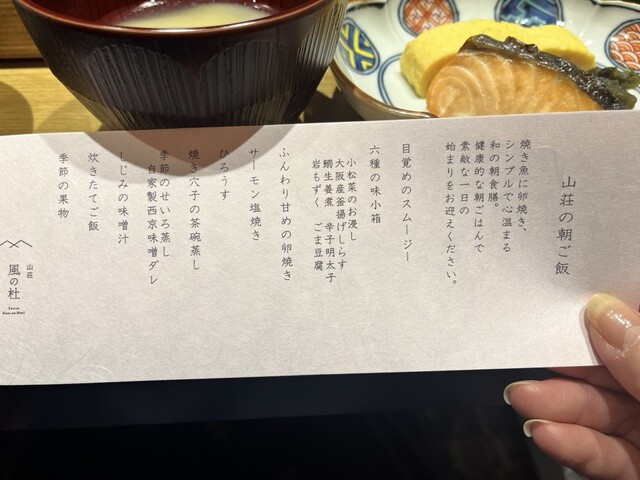 山荘の朝ご飯
焼き魚に卵焼き、
シンプルで心温まる
和の朝食膳。
健康的な朝ごはんで
素敵な一日の
始まりをお迎えください。
目覚めのスムージー
六種の味小箱
小松菜のお浸し
大阪産釜揚げしらす
鯛生姜煮　辛子明太子
岩もずく　ごま豆腐
ふんわり甘めの卵焼き
サーモン塩焼き
ひろうす
焼き穴子の茶碗蒸し
季節のせいろ蒸し
自家製西京味噌ダレ
しじみの味噌汁
炊きたてご飯
季節の果物
山荘
風の杜
Sanso
Kaze no Mori